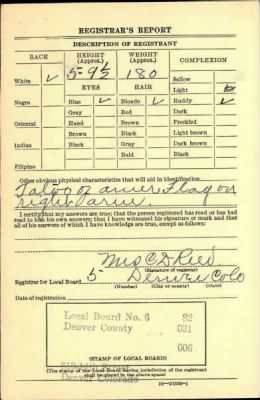 REGISTRAR'S REPORT
DESCRIPTION OF REGISTRANT
RACE HEIGHT (Approx.) WEIGHT (Approx.) COMPLEXION
5-9½ 180 Sallow
White ✓ EYES HAIR Light
Negro Blue ✓ Blonde ✓ Ruddy ✓
Gray Red Dark
Oriental Hazel Brown Freckled
Brown Black Light brown
Indian Black Gray Dark brown
Bald Black
Filipino
Other obvious physical characteristics that will aid in identification
Tatoo of amer. Flag on
right arm
I certify that my answers are true; that the person registered has read or has had
read to him his own answers; that I have witnessed his signature or mark and that
all of his answers of which I have knowledge are true, except as follows:
Mrs C D Reed
(Signature of registrar)
Registrar for Local Board 5 Denver Colo
(Number) (City or county) (State)
Date of registration
Local Board No. 6 82
Denver County 031
006
Denver Colorado
(STAMP OF LOCAL BOARD)
(The stamp of the Local Board having jurisdiction of the registrant
shall be placed in the above space)